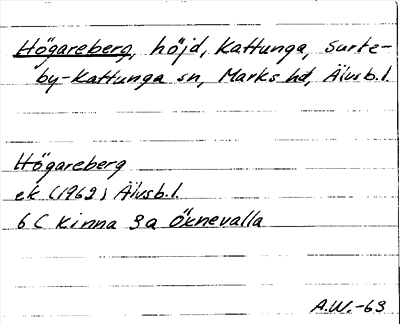 Högareberg, höjd, Kattunga, Surte-
by-Kattunga sn, Marks hd, Älvsb.l.
Högareberg
ek (1969) Älvsb.l.
6 C Kinna 9a Öxnevalla
A.W.-63